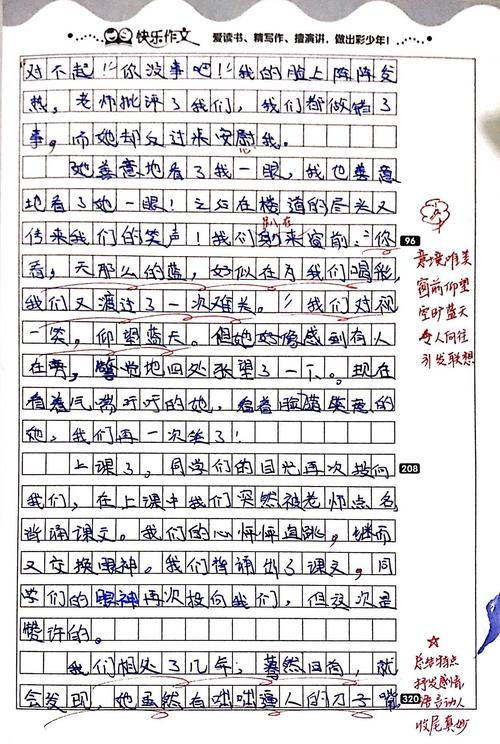 快乐作文 爱读书、精写作、擅演讲，做出彩少年！
对不起！""你没事吧！"我的脸上阵阵发
热，老师批评了我们，我们都做错了
事，而她却反过来安慰我。
她善意地看了我一眼，我也善意
地看了她一眼！之后在楼道的尽头又
传来我们的笑声！我们趴在窗前："你
96
看，天那么的蓝，好似在为我们喝彩，
我们又渡过了一次难关。"我们对视
一笑，仰望蓝天。但她好像感到有人
在旁，警觉地四处张望了一下。现在
看着气喘吁吁的她，看着脸腊笑意的
她，我们再一次笑了！
上课了，同学们的目光再次投向
208
我们，在上课中我们突然被老师点名
背诵课文。我们的心怦怦直跳，继而
又交换眼神。我们背诵出了课文，同
学们的眼神再次投向我们，但这次是
赞许的。
我们相处了几年，蓦然回首，就
会发现，她虽然有咄咄逼人的刀子嘴
320
意境唯美
窗前仰望
空时蓝天
令人向往
引发联想
总结特点
抒发感情
语言动人
收尾真妙